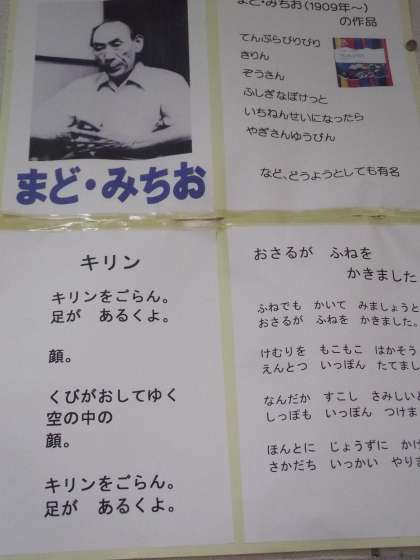 まど・みちお
まど・みちお(1909年～)
の作品
てんぷらぴりぴり
きりん
ぞうさん
ふしぎなぽけっと
いちねんせいになったら
やぎさんゆうびん
など、どうようとしても有名
キリン
キリンをごらん。
足が あるくよ。
顔。
くびがおしてゆく
空の中の
顔。
キリンをごらん。
足が あるくよ。
おさるが ふねを
かきました
ふねでも かいて みましょうと
おさるが ふねを かきました。
けむりを もこもこ はかそう
えんとつ いっぽん たてまし
なんだか すこし さみしいと
しっぽも いっぽん つけま
ほんとに じょうずに かけ
さかだち いっかい やりま